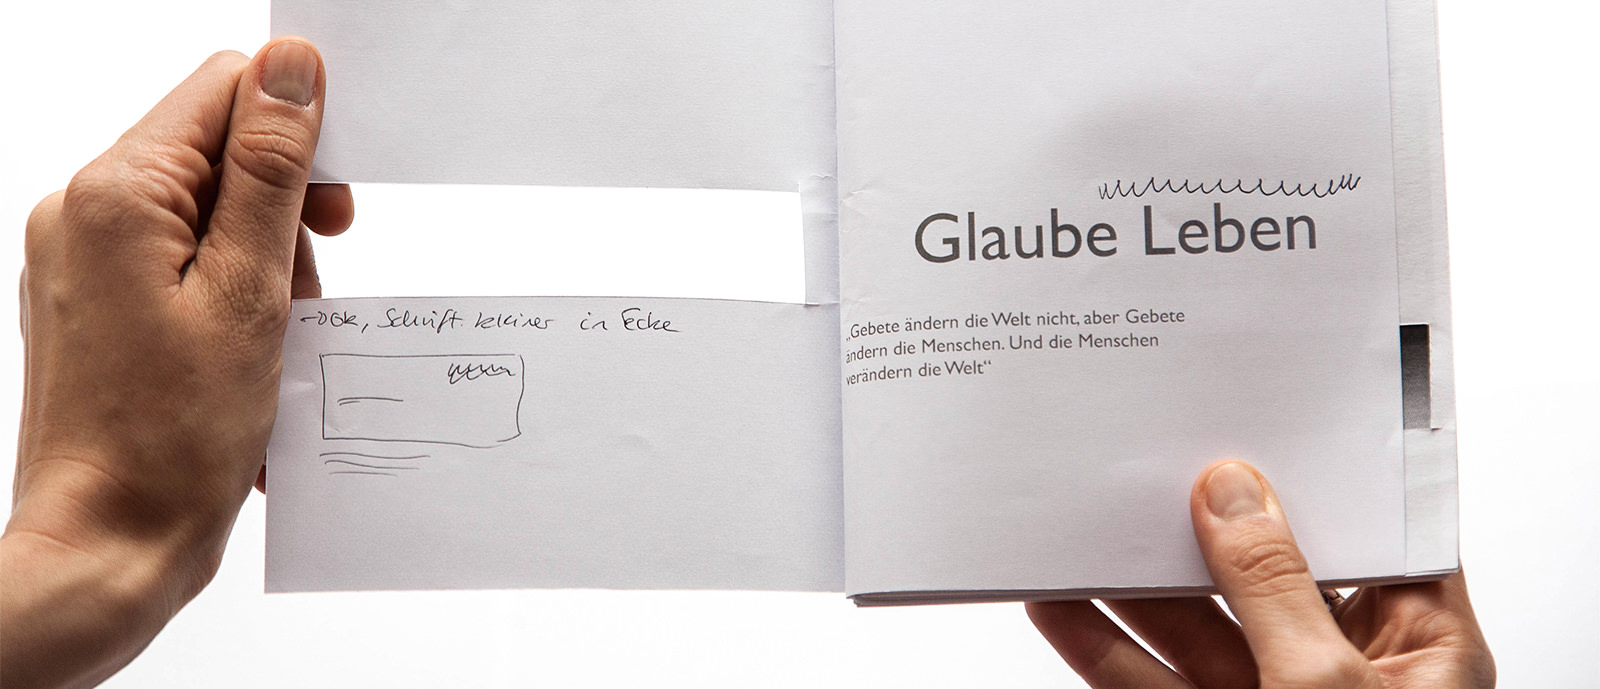 → Ok, Schrift kleiner in Ecke
Glaube Leben
„Gebete ändern die Welt nicht, aber Gebete
ändern die Menschen. Und die Menschen
verändern die Welt“